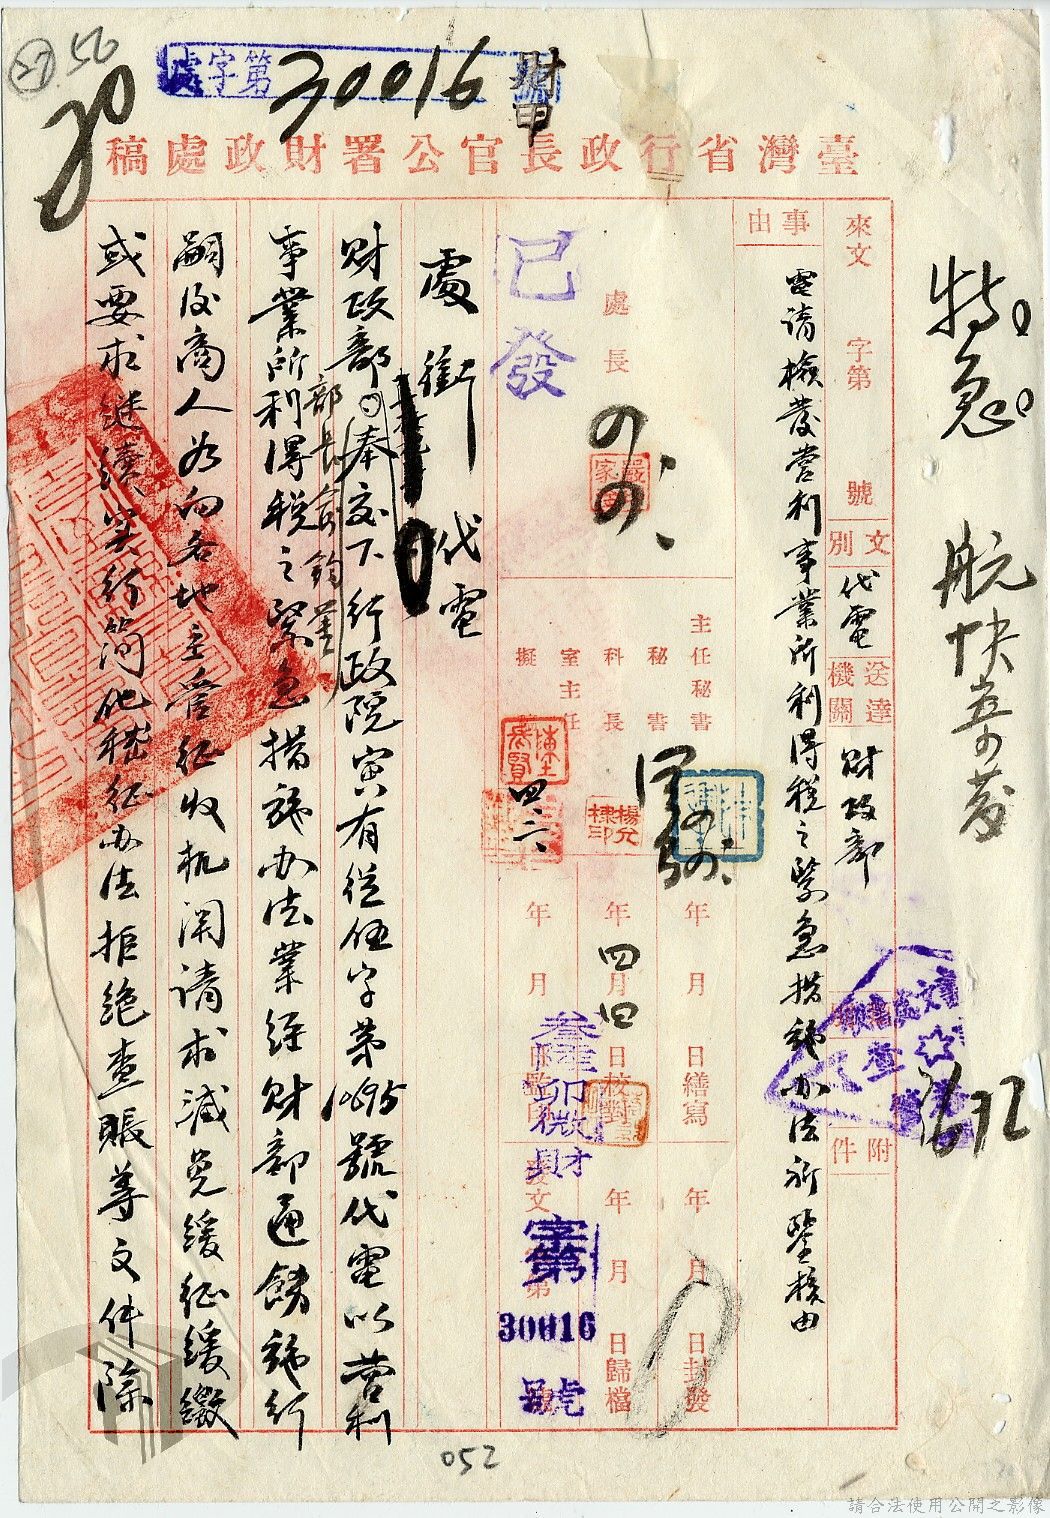 財甲
處字第30016號
56
27
臺灣省行政長官公署財政處稿
特急
航快寄發
來文
字第
號
文別
代電
送達機關
財政部
附件
1672
事由
電請檢發營利事業所利得稅之緊急措施办法祈鑒核由
處長
主任秘書
秘書
科長
室主任
擬
楊允棣印
四、二
年
月
日繕寫
年
四月四日校對
年
月
年
月
日封發
年
月
日歸檔
已發
叁陸卯微財
字第
30016
號
處銜代電
財政部
部長俞鈞鑒
奉交下行政院寅有從伍字第10695號代電以營利
事業所利得稅之緊急措施办法業經財部通飭施行
嗣後商人如向各地主管征收机関請求減免緩征緩繳
或要求继續实行簡化稽征办法拒絕查賬等文件除
052
請合法使用公開之影像